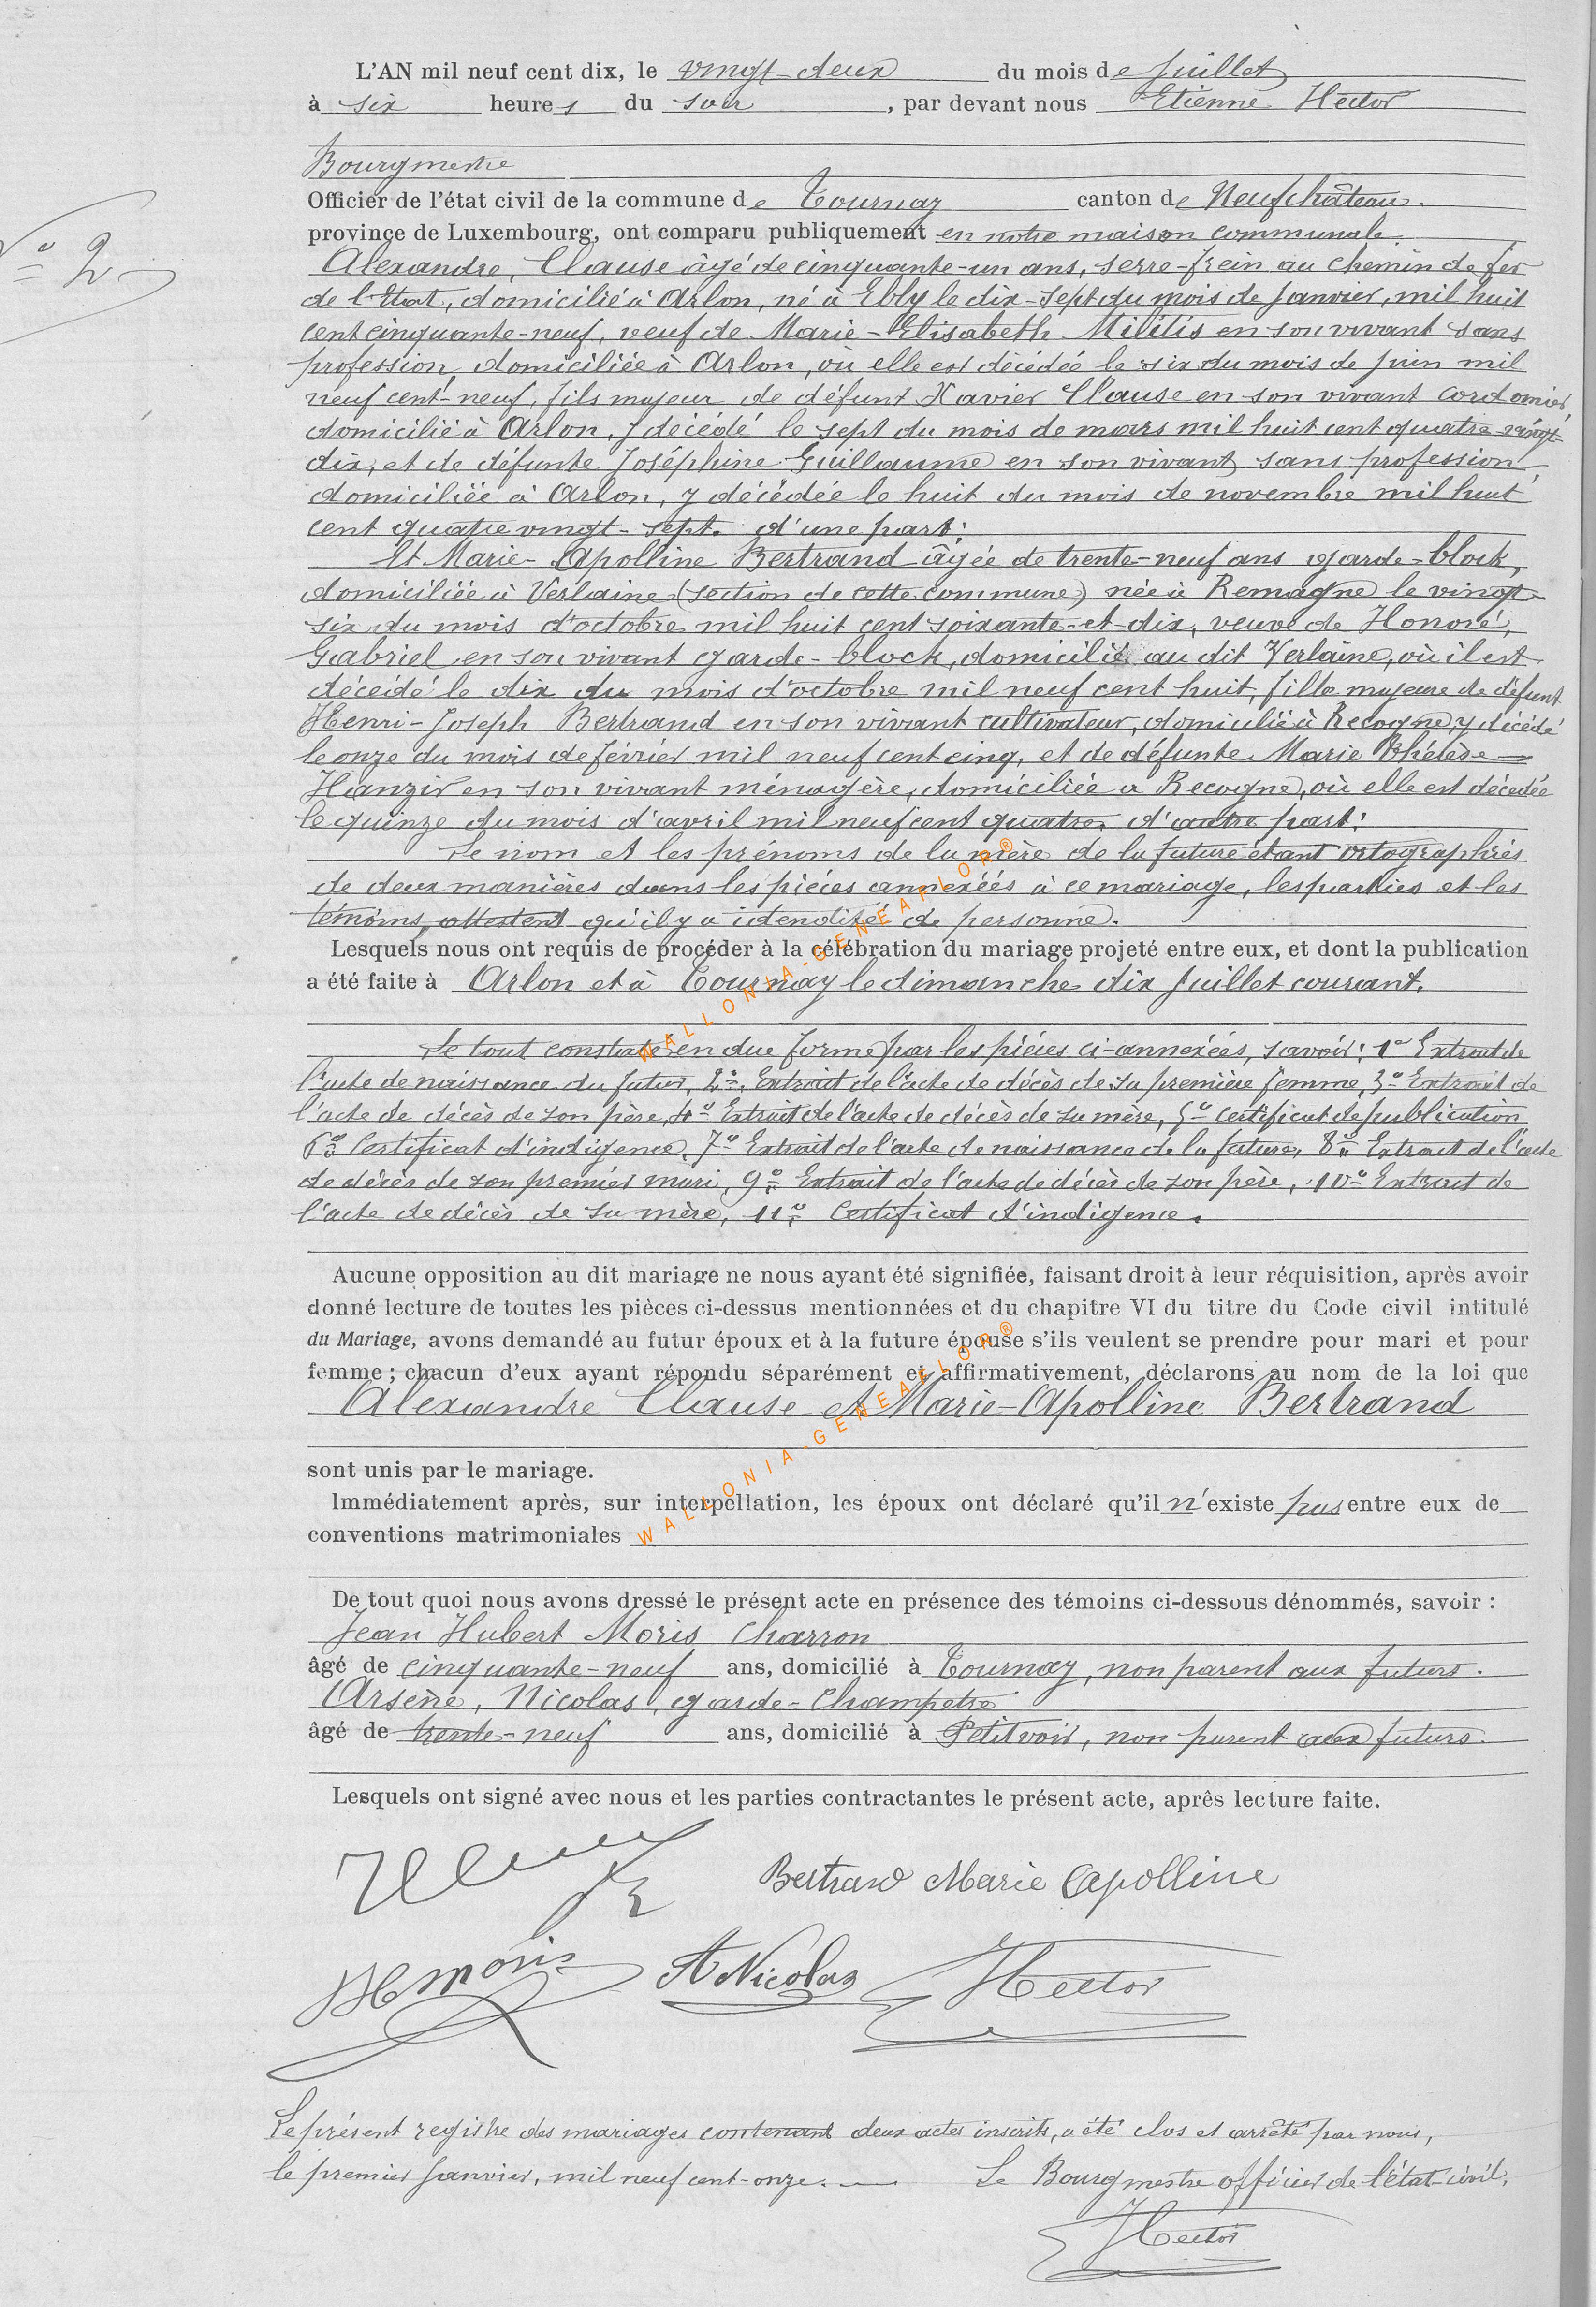 L'AN mil neuf cent dix, le vingt-deux du mois de Juillet
à six heures du soir, par devant nous Etienne Hector
Bourgmestre
Officier de l'état civil de la commune de Tournay canton de Neufchâteau.
province de Luxembourg, ont comparu publiquement en notre maison communale.
N° 2
Alexandre, Clause âgé de cinquante-un ans, serre-frein au chemin de fer
de l'Etat, domicilié à Arlon, né à Ebly le dix-sept du mois de Janvier, mil huit
cent cinquante-neuf, veuf de Marie-Elisabeth Militis en son vivant sans
profession, domiciliée à Arlon, où elle est décédée le six du mois de juin mil
neuf cent-neuf, fils majeur de défunt Xavier Clause en son vivant cordonnier,
domicilié à Arlon, y décédé le sept du mois de mars mil huit cent quatre-vingt-
dix, et de défunte Joséphine Guillaume en son vivant sans profession,
domiciliée à Arlon, y décédée le huit du mois de novembre mil huit
cent quatre vingt-sept. d'une part:
Et Marie-Apolline Bertrand âgée de trente-neuf ans garde-block,
domiciliée à Verlaine (section de cette commune) née à Remagne le vingt
six du mois d'octobre mil huit cent soixante-et-dix, veuve de Honoré,
Gabriel en son vivant garde-block, domicilié au dit Verlaine, où il est
décédé le dix du mois d'octobre mil neuf cent huit, fille majeure de défunt
Henri-Joseph Bertrand en son vivant cultivateur, domicilié à Recogne, y décédé
le onze du mois de février mil neuf cent cinq, et de défunte Marie Thérèse
Hanzir en son vivant ménagère, domiciliée à Recogne, où elle est décédée
le quinze du mois d'avril mil neuf cent quatre. d'autre part:
Le nom et les prénoms de la mère de la future étant ortographiés
de deux manières dans les pièces annexées à ce mariage, les parties et les
témoins, attestent qu'il y a idendité de personne.
Lesquels nous ont requis de procéder à la célébration du mariage projeté entre eux, et dont la publication
a été faite à Arlon et à Tournay le dimanche dix Juillet courant.
Le tout constaté en due forme par les pièces ci-annexées, savoir: 1° Extrait de
l'acte de naissance du futur, 2° Extrait de l'acte de décès de sa première femme, 3° Extrait de
l'acte de décès de son père, 4° Extrait de l'acte de décès de sa mère, 5° Certificat de publication,
6° Certificat d'indigence, 7° Extrait de l'acte de naissance de la future, 8° Extrait de l'acte
de décès de son premier mari, 9° Extrait de l'acte de décès de son père, 10° Extrait de
l'acte de décès de sa mère, 11° Certificat d'indigence.
Aucune opposition au dit mariage ne nous ayant été signifiée, faisant droit à leur réquisition, après avoir
donné lecture de toutes les pièces ci-dessus mentionnées et du chapitre VI du titre du Code civil intitulé
du Mariage, avons demandé au futur époux et à la future épouse s'ils veulent se prendre pour mari et pour
femme ; chacun d'eux ayant répondu séparément et affirmativement, déclarons au nom de la loi que
Alexandre Clause et Marie-Apolline Bertrand
sont unis par le mariage.
Immédiatement après, sur interpellation, les époux ont déclaré qu'il n'existe pas entre eux de
conventions matrimoniales
De tout quoi nous avons dressé le présent acte en présence des témoins ci-dessous dénommés, savoir :
Jean Hubert Moris Charron
âgé de cinquante-neuf ans, domicilié à Tournay, non parent aux futurs.
Arsène, Nicolas, garde-champetre
âgé de trente-neuf ans, domicilié à Petitvoir, non parent aux futurs.
Lesquels ont signé avec nous et les parties contractantes le présent acte, après lecture faite.
Bertrand Marie Apolline
Moris A Nicolas Hector
Le présent registre des mariages contenant deux actes inscrits, a été clos et arrêté par nous,
le premier Janvier, mil neuf cent-onze. Le Bourgmestre officier de l'état-civil.
Hector
WALLONIA-GENEAFLOR®
WALLONIA-GENEAFLOR®